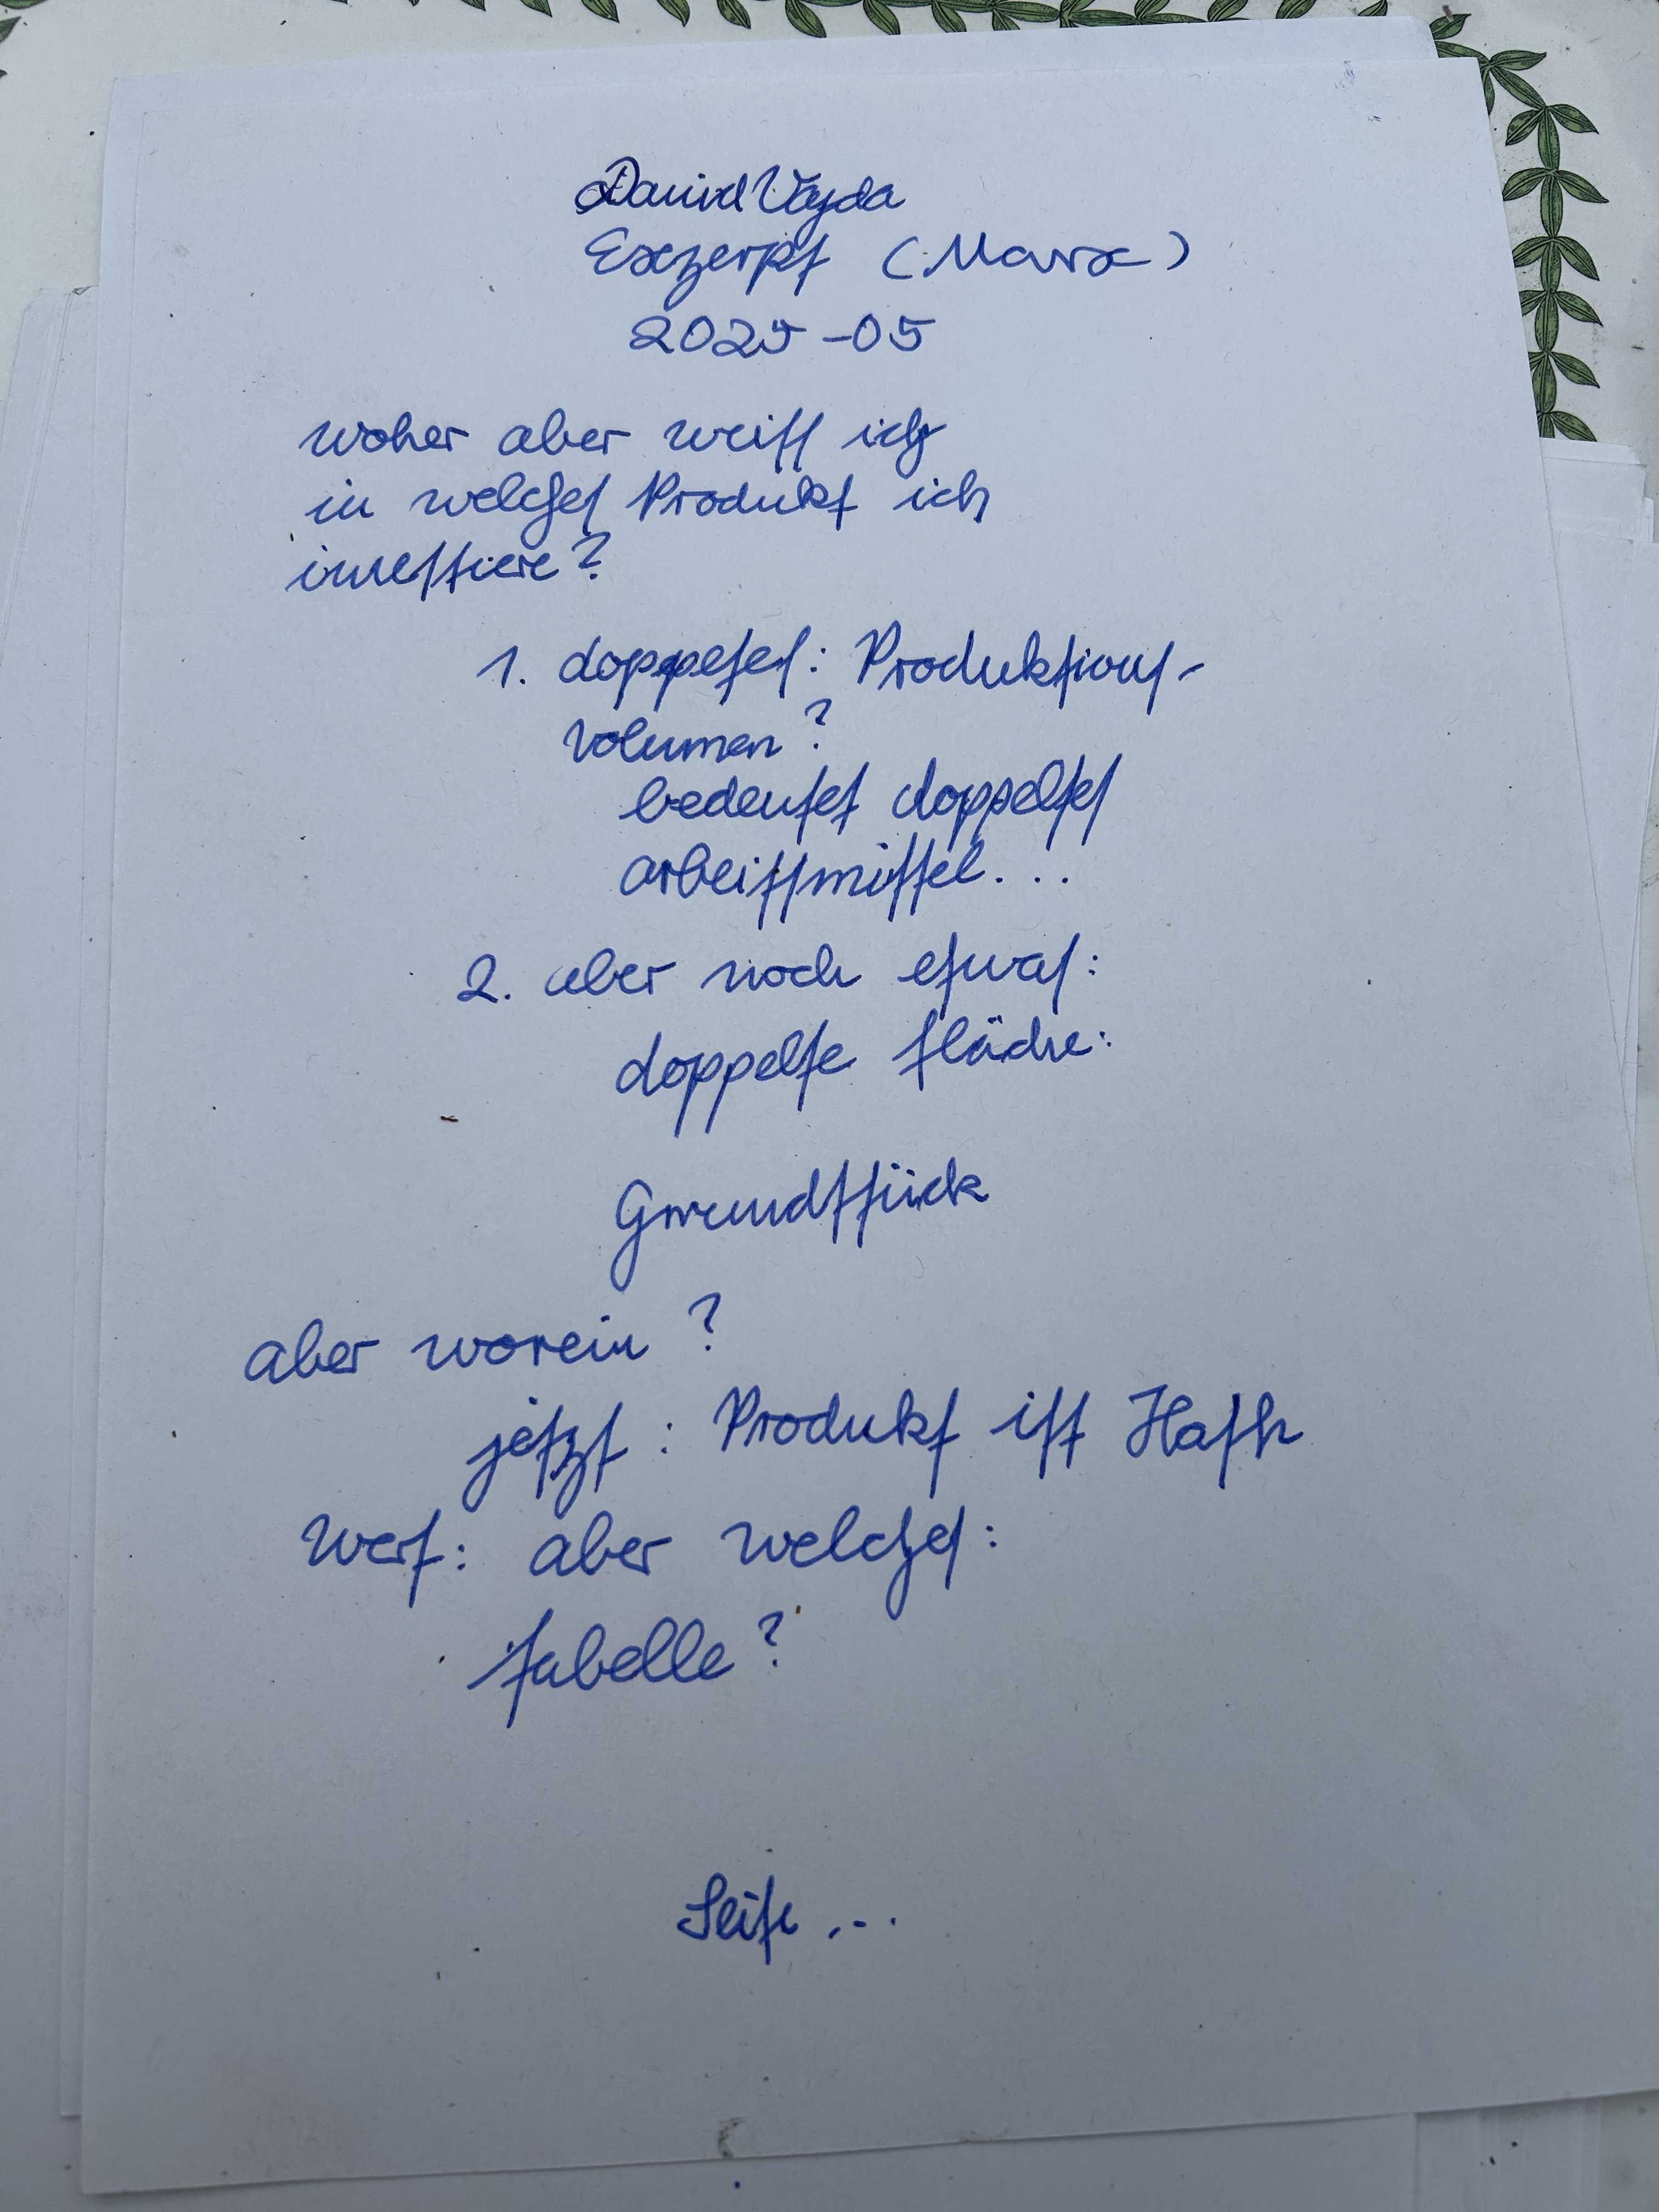 David Vajda
Exzerpt (Marx)
2025-05
woher aber weiss ich
in welches Produkt ich
investiere?
1. doppetes: Produktions-
volumen?
bedeutet doppeltes
arbeitsmittel...
2. aber noch etwas:
doppelte fläche:
Grundstück
aber worein?
jetzt: Produkt ist
Wert: aber welches:
tabelle?
Seife ...